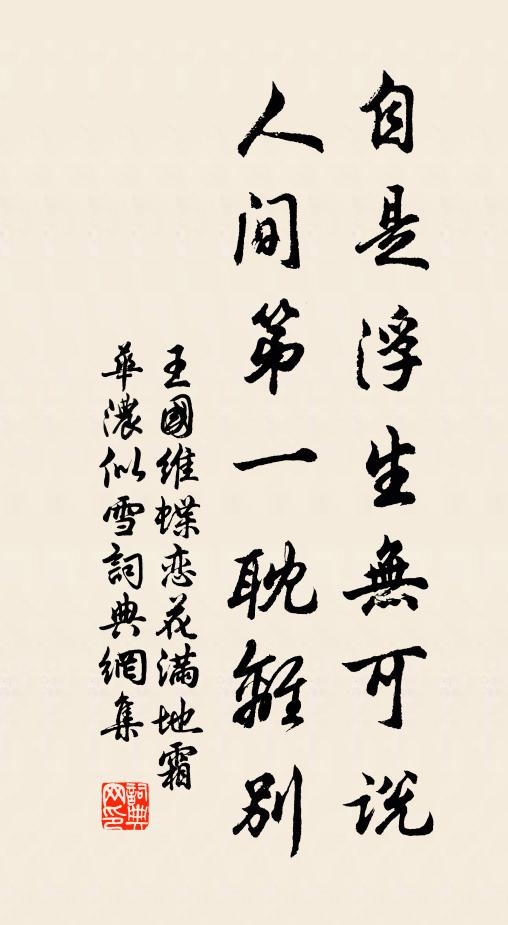 自是浮生無可說
人間第一耽離別
王國維蝶恋花滿地霜
華濃似雪詞典網集
詞典
网印